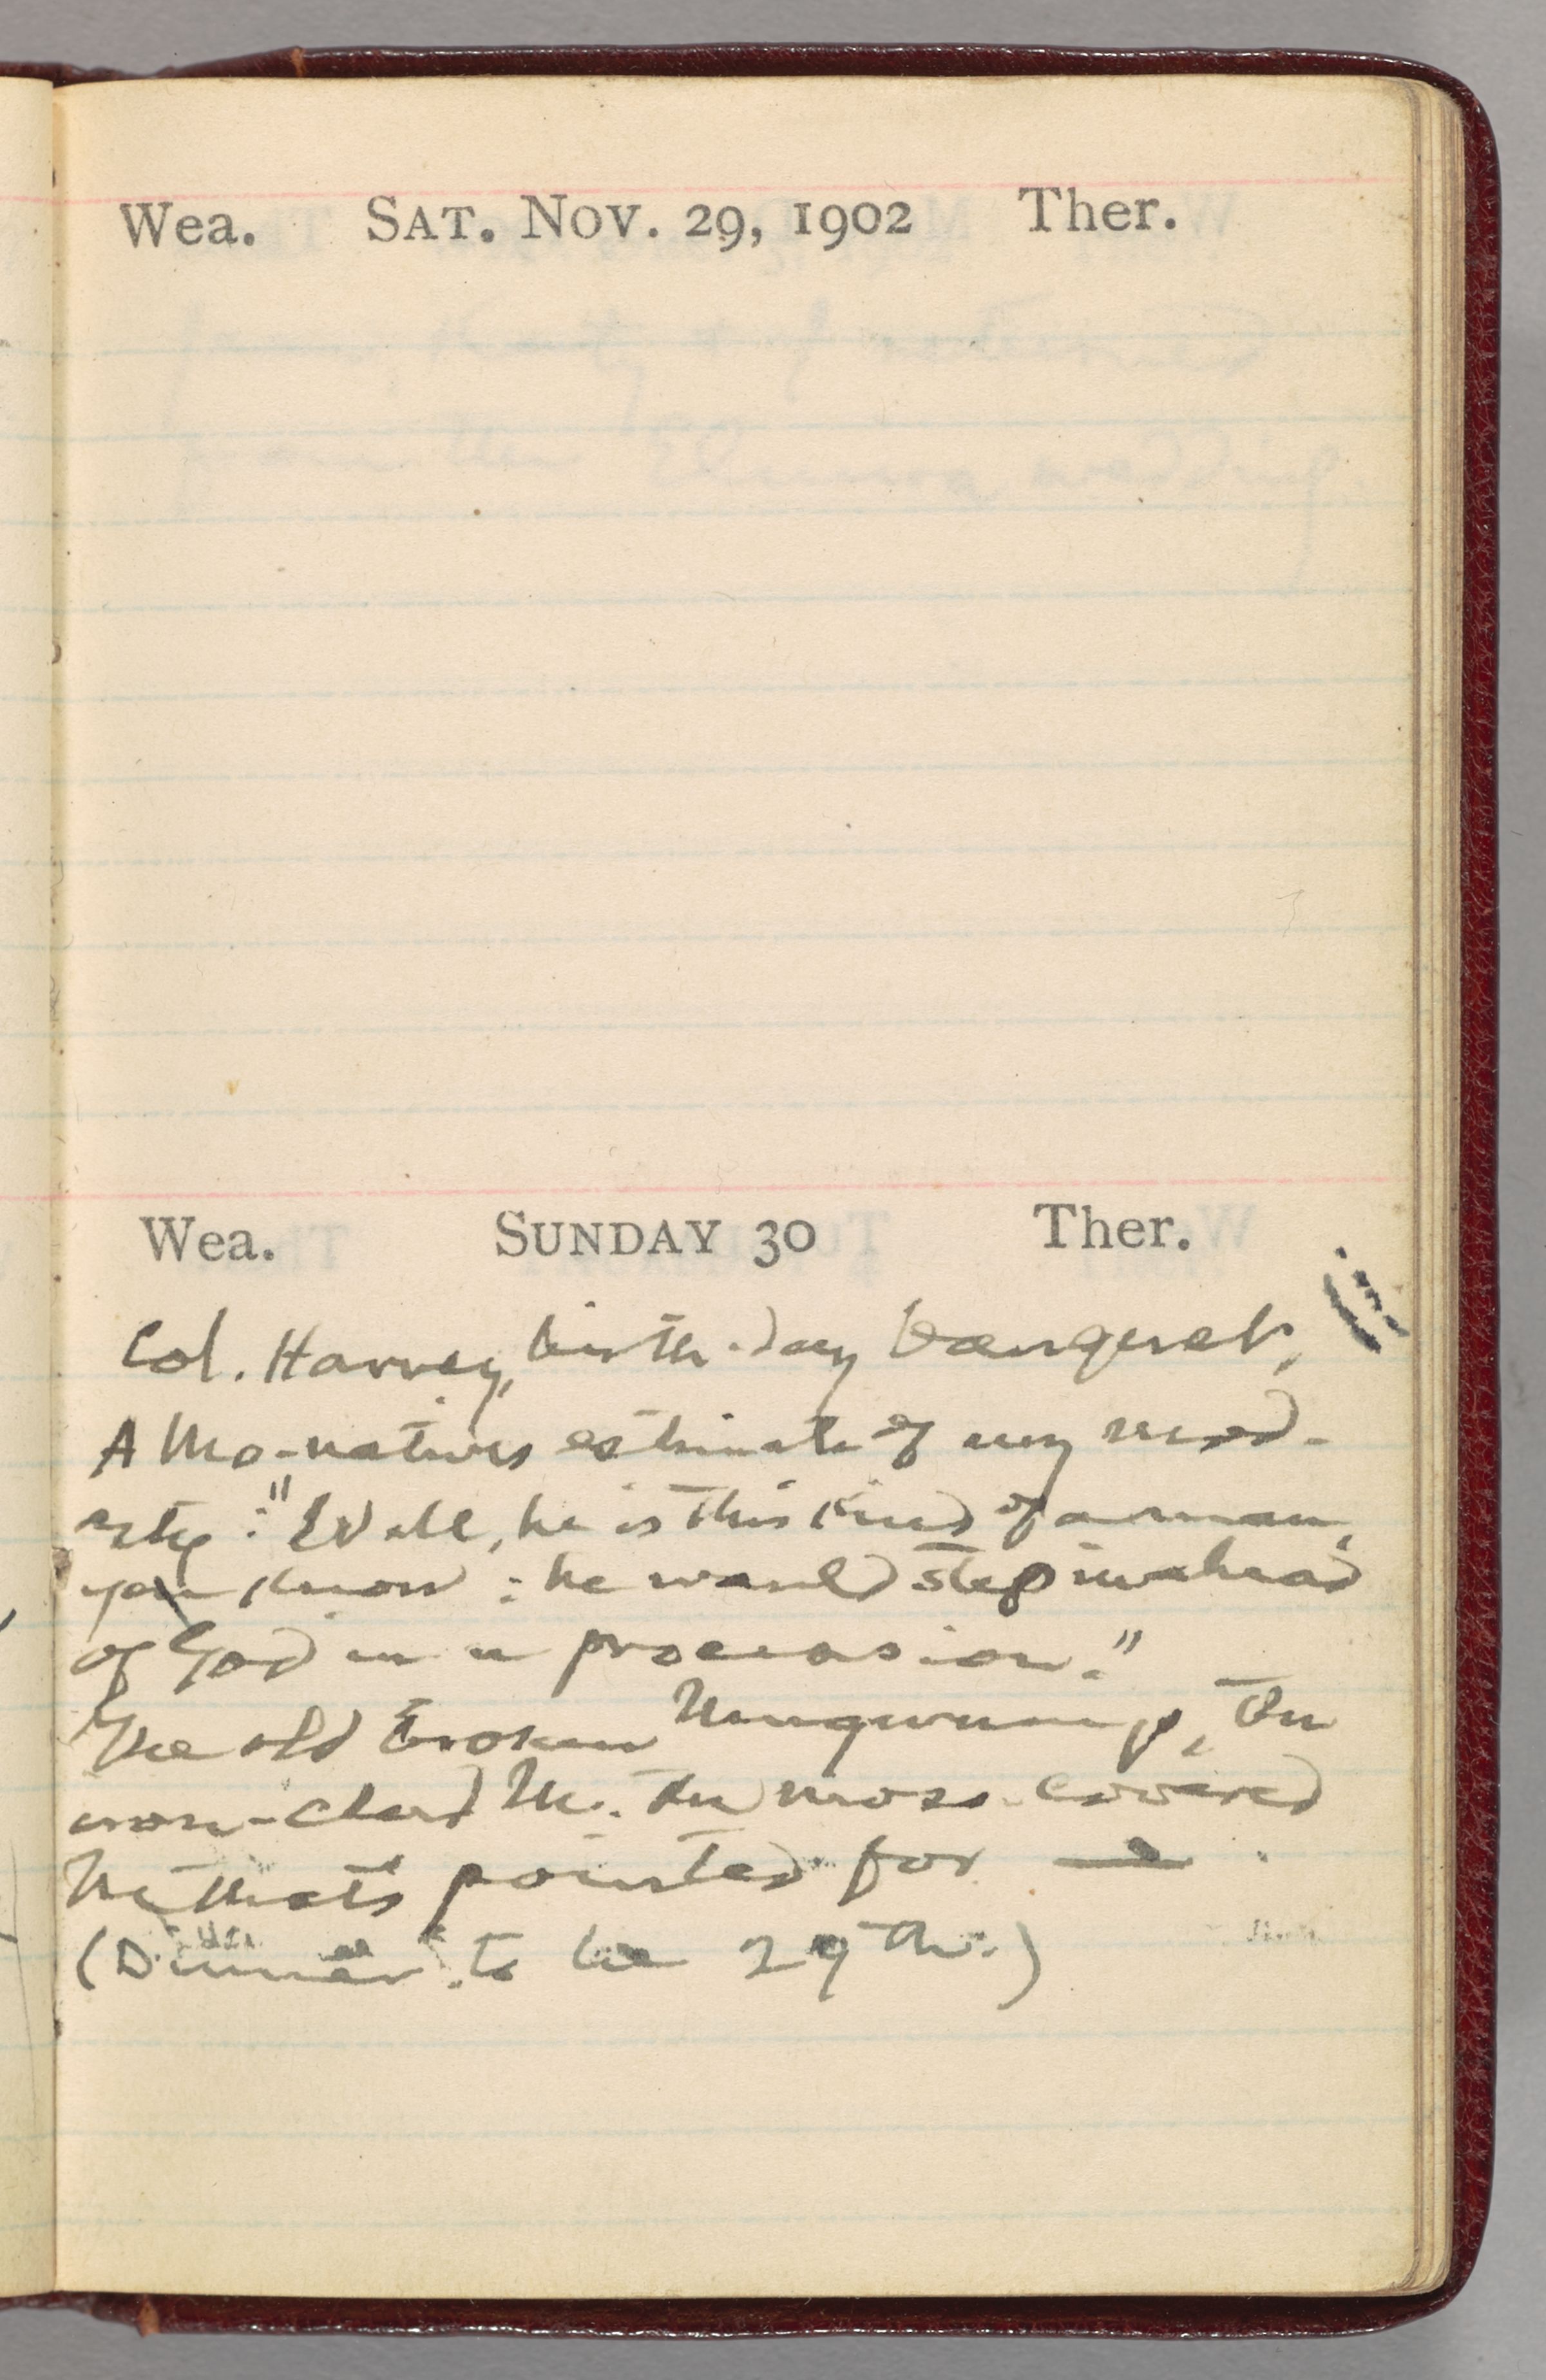 Wea. SAT. NOV. 29, 1902 Ther.
Wea. SUNDAY 30 Ther.
Col. Harvey, birth-day banquet,
A Mo-natives estimate of my mod-
esty: "Well, he is this kind of a man,
you know: he would step in ahead
of God in a procession."
The old broken Mugwump, the
iron-clad M. the moss-covered
M that's pointed for
(Dinner to be 29th.)